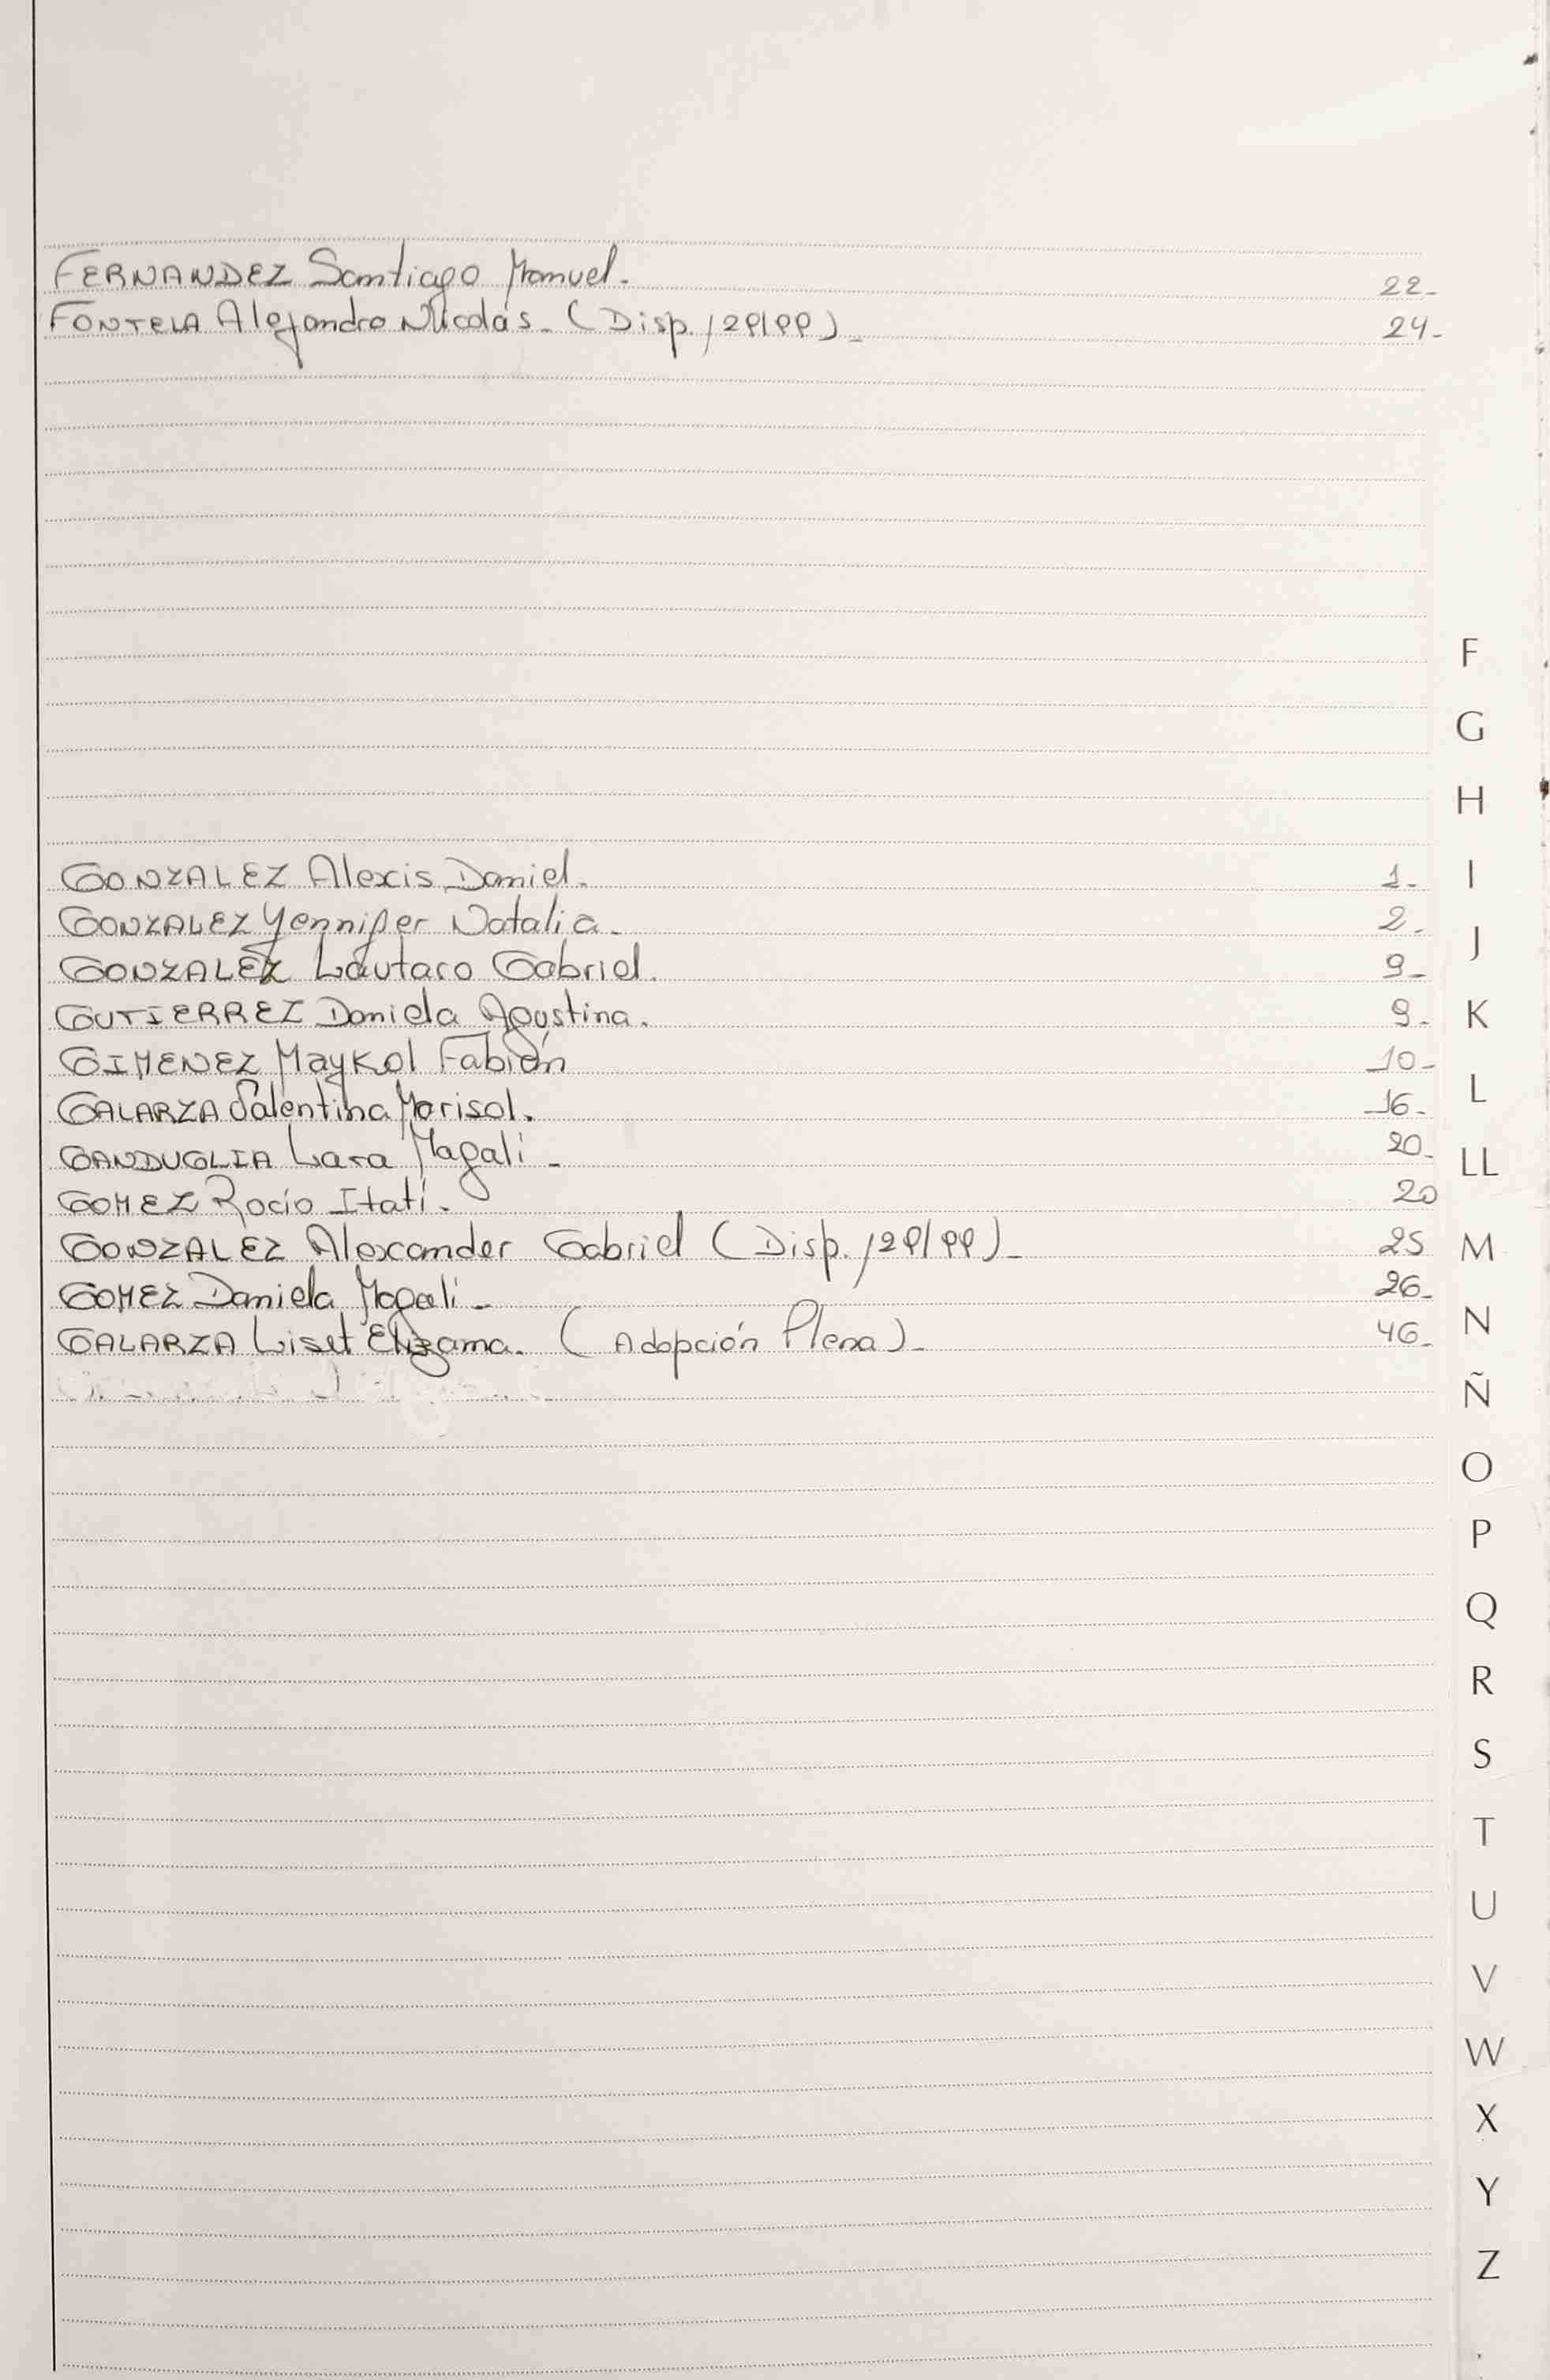 FERNANDEZ Santiago Manuel. 22-
FONTELA Alejandro Nicolás. (Disp. 129/99)- 24-
F
G
H
GONZALEZ Alexis Daniel. 1- I
GONZALEZ Yennifer Natalia. 2- J
GONZALEZ Lautaro Gabriel. 9-
GUTIERREZ Daniela Agustina. 9- K
GIMENEZ Maykol Fabián 10-
GALARZA Salentina Marisol. 16- L
GANDUGLIA Lara Magalí - 20- LL
GOMEZ Rocío Itatí. 20
GONZALEZ Alexander Gabriel (Disp. 129/99)- 25 M
GOMEZ Daniela Magalí - 26-
GALARZA Liset Elizama. (Adopción Plena)- 46- N
Ñ
O
P
Q
R
S
T
U
V
W
X
Y
Z